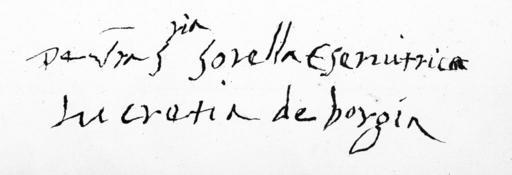 De Vra S.ria Sorella E Servitrice
Lucretia de borgia